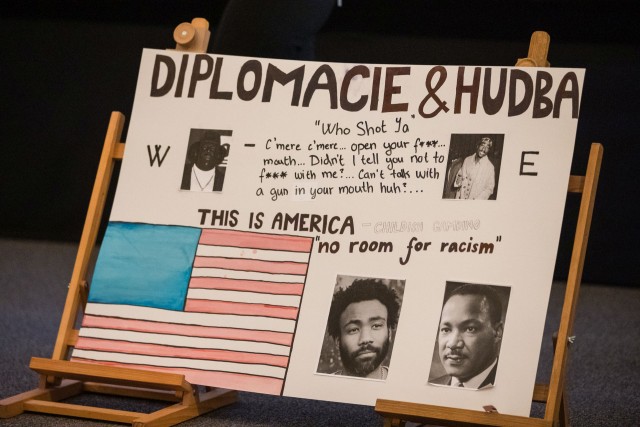 DIPLOMACIE & HUDBA
"Who Shot Ya"
W - C'mere c'mere... open your f***... E
mouth... Didn't I tell you not to
f*** with me?... Can't talk with
a gun in your mouth huh?...
THIS IS AMERICA - CHILDISH GAMBINO
"no room for racism"